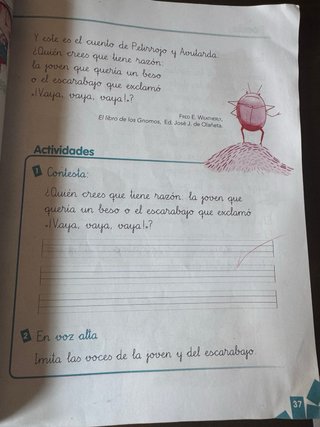 Y este es el cuento de Petirrojo y Avutarda.
¿Quién crees que tiene razón:
la joven que quería un beso
o el escarabajo que exclamó
«¡Vaya, vaya, vaya!»?
FRED E. WEATHERLY,
El libro de los Gnomos, Ed. José J. de Olañeta.
Actividades
1 Contesta:
¿Quién crees que tiene razón, la joven que
quería un beso o el escarabajo que exclamó
«¡Vaya, vaya, vaya!»?
2 En voz alta
Imita las voces de la joven y del escarabajo.
37